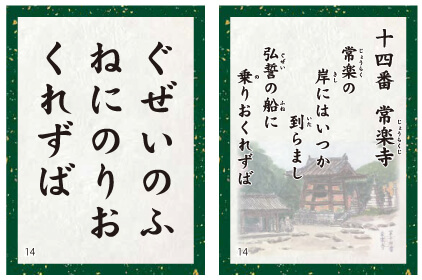 ぐぜいのふ
ねにのりお
くれずば
14
十四番 常楽寺
じょうらくじ
常楽の
じょうらく
岸にはいつか
きし
到らまし
いた
弘誓の船に
ぐぜい ふね
乗りおくれずば
の
14